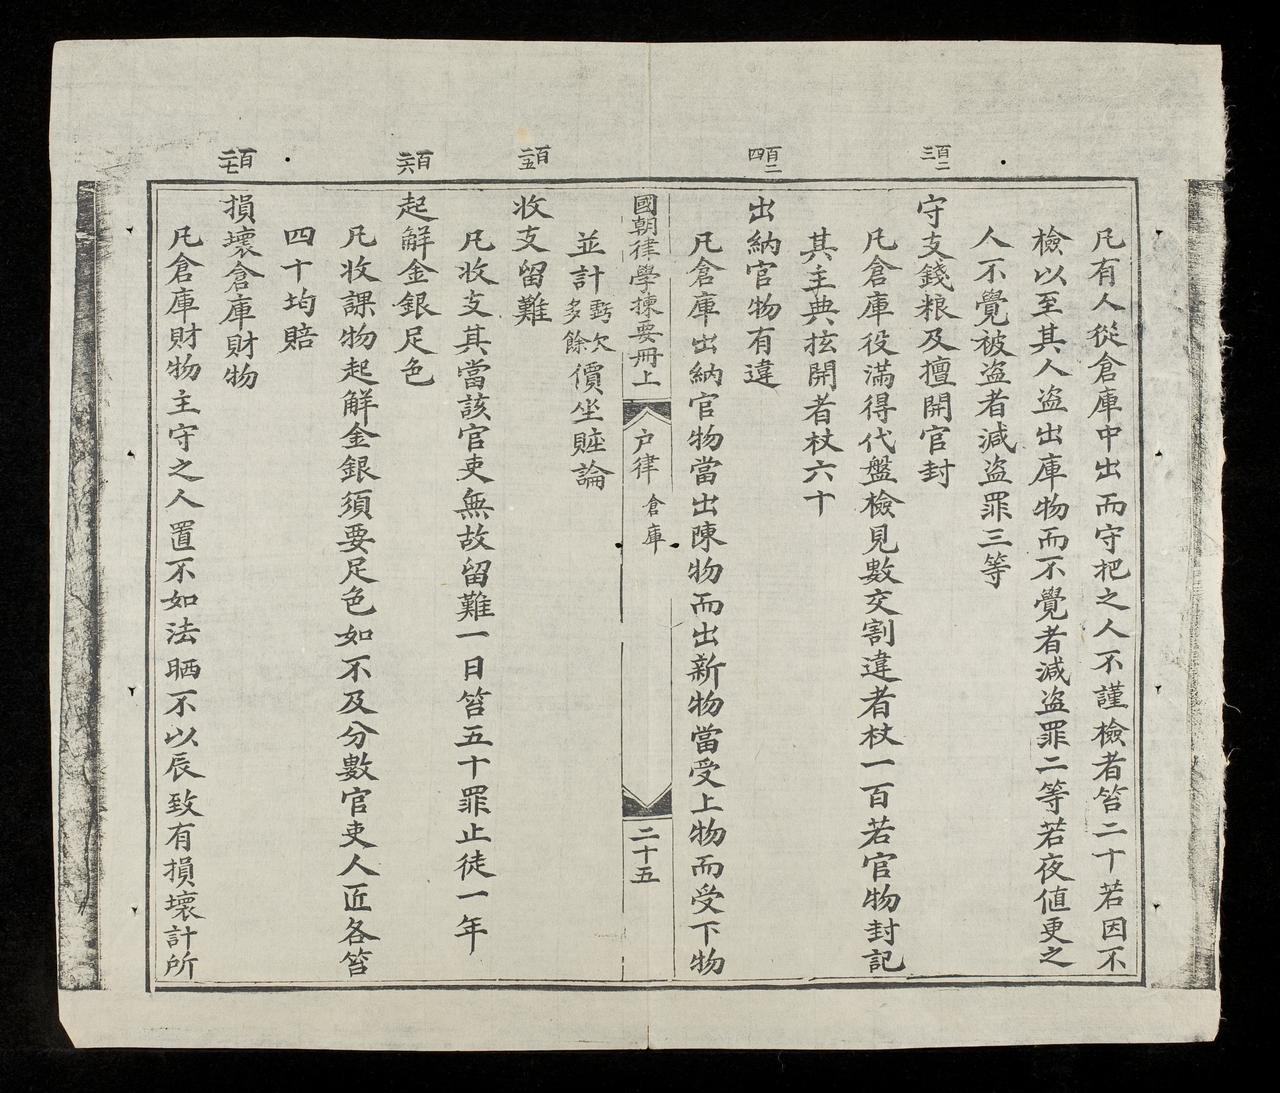 凡有人從倉庫中出而守把之人不謹檢者笞二十若因不
檢以至其人盗出庫物而不覺者減盗罪二等若夜値更之
人不覺被盗者減盗罪三等
百二三
守支錢粮及擅開官封
凡倉庫役滿得代盤檢見數交割違者杖一百若官物封記
其主典抂開者杖六十
百二四
出納官物有違
凡倉庫出納官物當出陳物而出新物當受上物而受下物
國朝律學揀要冊上 户律 倉庫 二十五
並計虧欠多餘價坐賍論
百二五
收支留難
凡收支其當該官吏無故留難一日笞五十罪止徒一年
百二六
起解金銀足色
凡收課物起解金銀須要足色如不及分數官吏人匠各笞
四十均賠
百二七
損壞倉庫財物
凡倉庫財物主守之人置不如法晒不以辰致有損壞計所